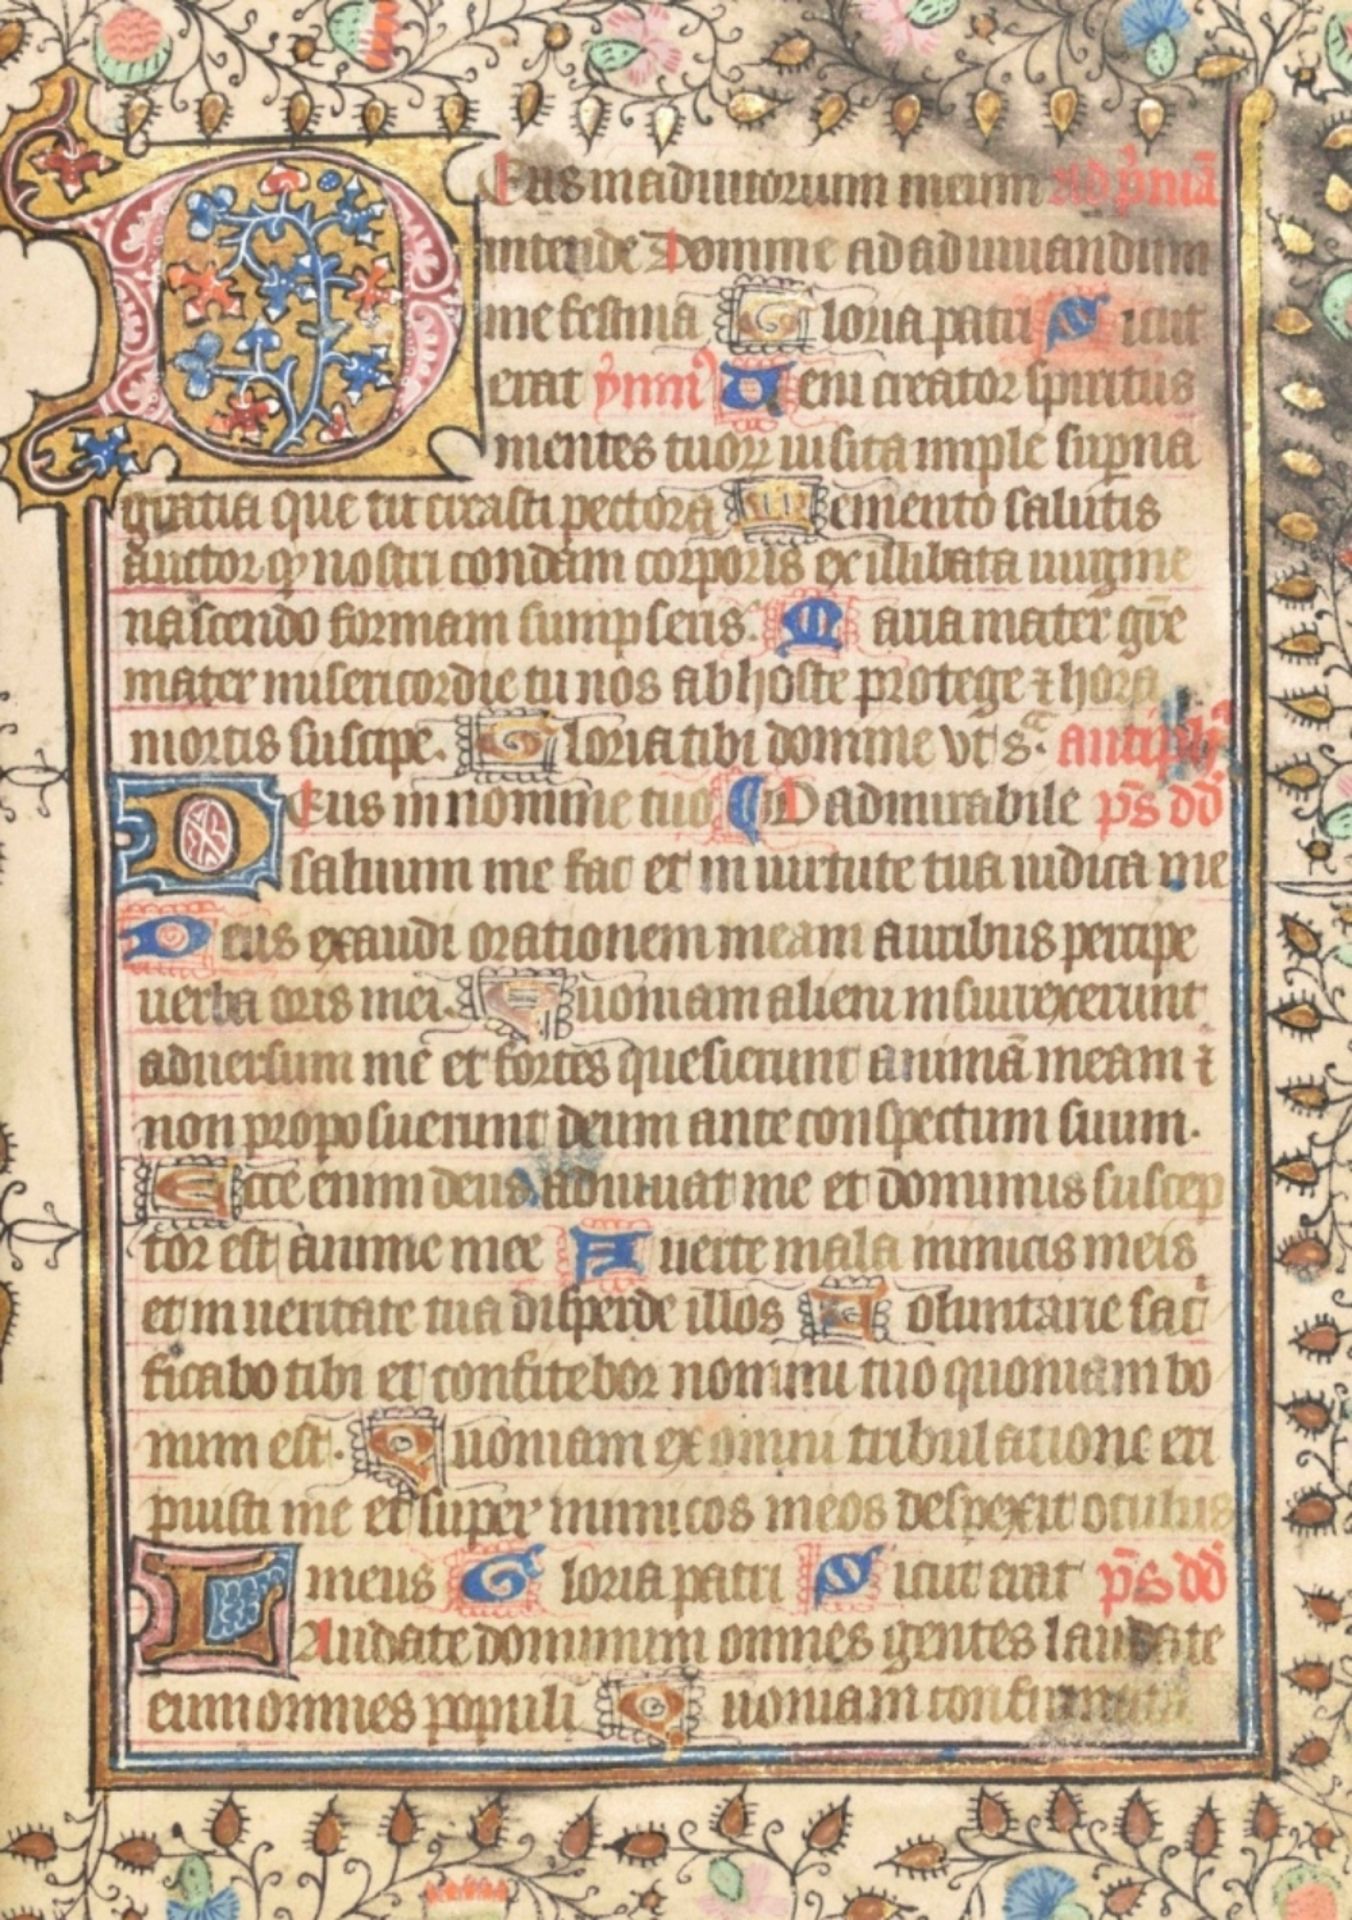 Deus in adiutorium meum Ad p'mā
intende Domine ad adiuuandum
me festina Gloria patri Sicut
erat ẏmn' Veni creator spiritus
mentes tuoꝝ uisita imple sup̄na
gratia que tu creasti pectora Memento salutis
auctor ꝙ nostri condam corporis ex illibata uirgine
nascendo formam sumpseris. Maria mater gr̄e
mater misericordie tu nos ab hoste protege ⁊ hora
mortis suscipe. Gloria tibi domine vt sᵃ. antiph'
Deus in nomine tuo O admirabile ps̄ dd̄
saluum me fac et in uirtute tua iudica me
Deus exaudi orationem meam auribus percipe
uerba oris mei. Quoniam alieni insurrexerunt
aduersum me et fortes quesierunt animā meam ⁊
non proposuerunt deum ante conspectum suum.
Ecce enim deus adiuuat me et dominus suscep
tor est anime mee Auerte mala inimicis meis
et in ueritate tua disperde illos Uoluntarie sac̍
ficabo tibi et confitebor nomini tuo quoniam bo
num est. Quoniam ex omni tribulatione eri
puisti me et super inimicos meos despexit oculus
meus Gloria patri Sicut erat ps̄ dd̄
Laudate dominum omnes gentes laudate
eum omnes populi Quoniam confirmata